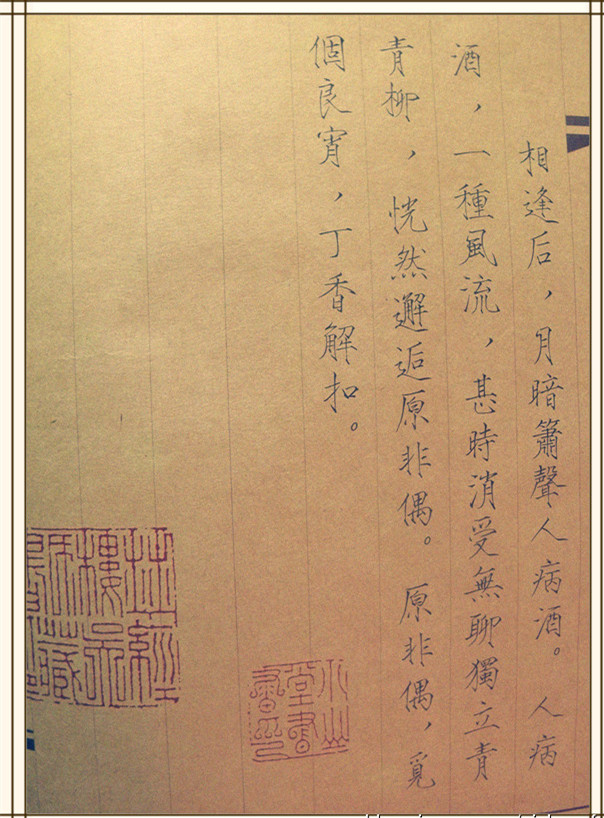 相逢后，月暗簫聲人病酒。人病
酒，一種風流，甚時消受無聊獨立青
青柳，恍然邂逅原非偶。原非偶，覓
個良宵，丁香解扣。